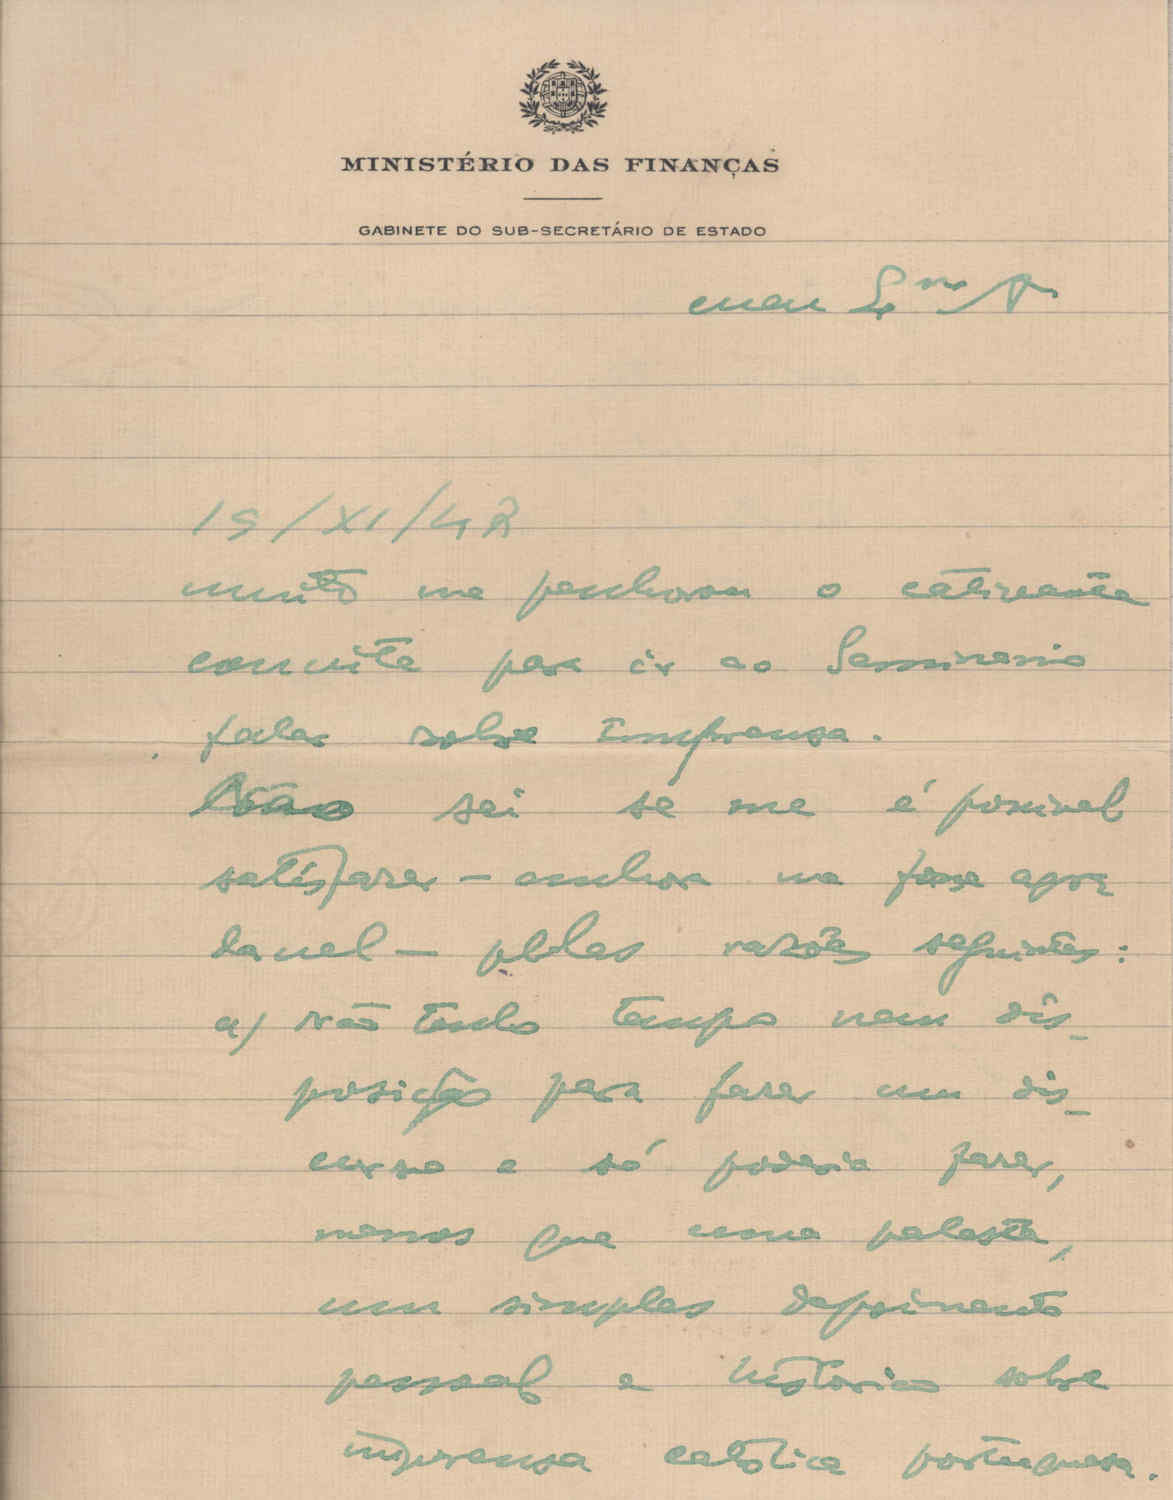 MINISTÉRIO DAS FINANÇAS
GABINETE DO SUB-SECRETÁRIO DE ESTADO
meu
muito me penhorou o cativante
convite para ir ao Seminario
falar sobre Imprensa.
Não sei se me é possivel
satisfazer - embora na fase
- pelas razões seguintes:
a) não tenho tempo nem dis-
posição para fazer um dis-
curso e só poderia fazer,
menos que uma palestra,
um simples depoimento
pessoal e historico sobre
imprensa católica portuguesa.